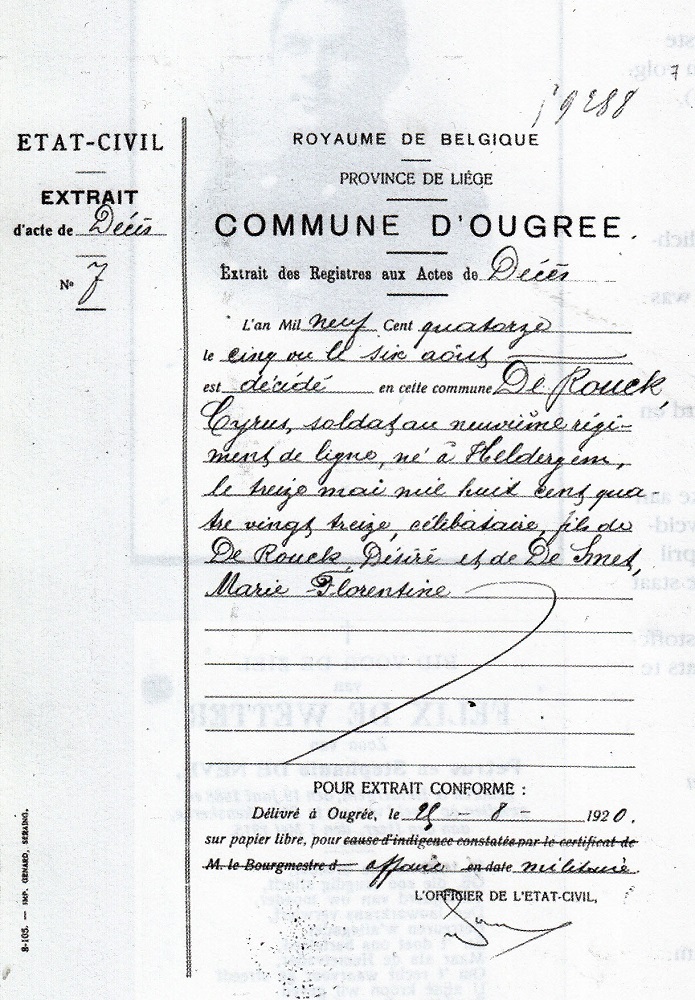 7
9288
ETAT-CIVIL
EXTRAIT
d'acte de Décès
N° 7
ROYAUME DE BELGIQUE
PROVINCE DE LIÉGE
COMMUNE D'OUGREE.
Extrait des Registres aux Actes de Décès
L'an Mil neuf Cent quatorze
le cinq ou le six août
est décidé en cette commune De Rouck,
Cyrus, soldat au neuvième régi-
ment de ligne, né à Heldergem,
le treize mai mil huit cent qua-
tre vingt treize, célibataire, fils de
De Rouck, Désiré et de De Smet,
Marie Florentine
POUR EXTRAIT CONFORME :
Délivré à Ougrée, le 25 - 8 - 1920.
sur papier libre, pour cause d'indigence constatée par le certificat de
M. le Bourgmestre d affaire en date militaire
L'OFFICIER DE L'ETAT-CIVIL,
8-105. — IMP. GENARD, SERAING.
FELIX DE WETTER
Zoon van
Petrus en Stephanie DE NEVE,